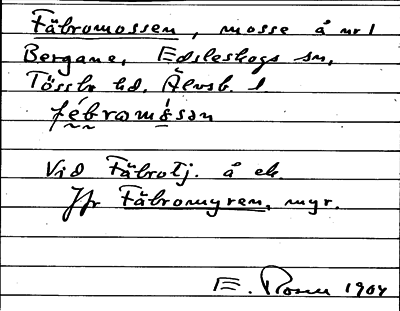 Fäbromossen, mosse å nr 1
Bergane, Edsleskogs sn,
Tössbo hd. Älvsb. l.
fébromåsan
Vid Fäbrotj. å ek.
Jfr Fäbromyren, myr.
E. Rosen 1904